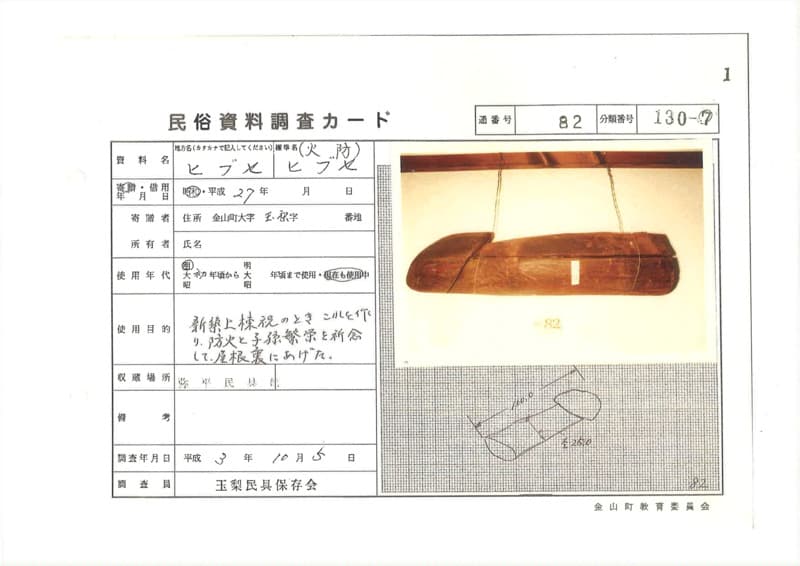 1
民俗資料調査カード
通番号 82 分類番号 130-7
資料名 地方名(カタカナで記入してください) ヒブセ 標準名(火防) ヒブセ
寄贈・借用年月日 昭和・平成 27年 月 日
寄贈者 住所 金山町大字 玉梨字 番地
所有者 氏名
使用年代 明大昭 初年頃から 明大昭 年頃まで使用・現在も使用中
使用目的 新築上棟祝のとき これを作
り、防火と子孫繁栄を祈念
して、屋根裏にあげた。
収蔵場所 弥平民具館
備考
調査年月日 平成 3年 10月 5日
調査員 玉梨民具保存会
82
110.0
82
金山町教育委員会